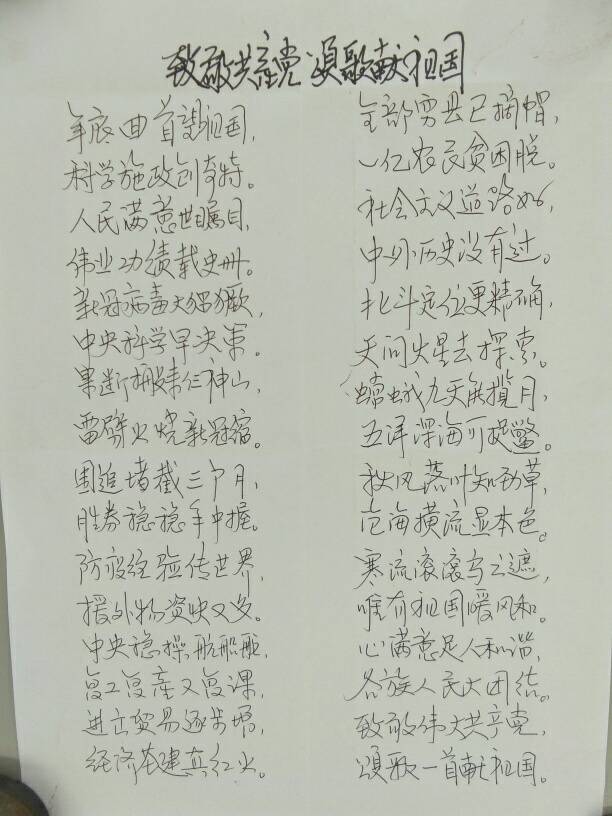 致敬共產党 頌歌献祖国
年底回首望祖国,
科学施政创奇特。
人民满意世瞩目,
伟业功绩载史册。
新冠病毒太猖獗,
中央科学早决策。
果断搬来二神山,
雷劈火烧新冠瘟。
围追堵截三个月,
胜券稳稳手中握。
防疫经验传世界,
援外物资快又多。
中央稳操航船舵,
复工复產又复课,
进出贸易逐步增,
经济基建真红火。
全部穷县已摘帽,
一亿农民贫困脱。
社会主义道路好,
中外历史没有过。
北斗定位更精确,
天问火星去探索。
嫦娥九天能揽月,
五洋深海可捉鳖。
秋风落叶知劲草,
沧海横流显本色。
寒流滚滚乌云遮,
唯有祖国暖风和。
心满意足人和谐,
各族人民大团结。
致敬伟大共产党,
頌歌一首献祖国。